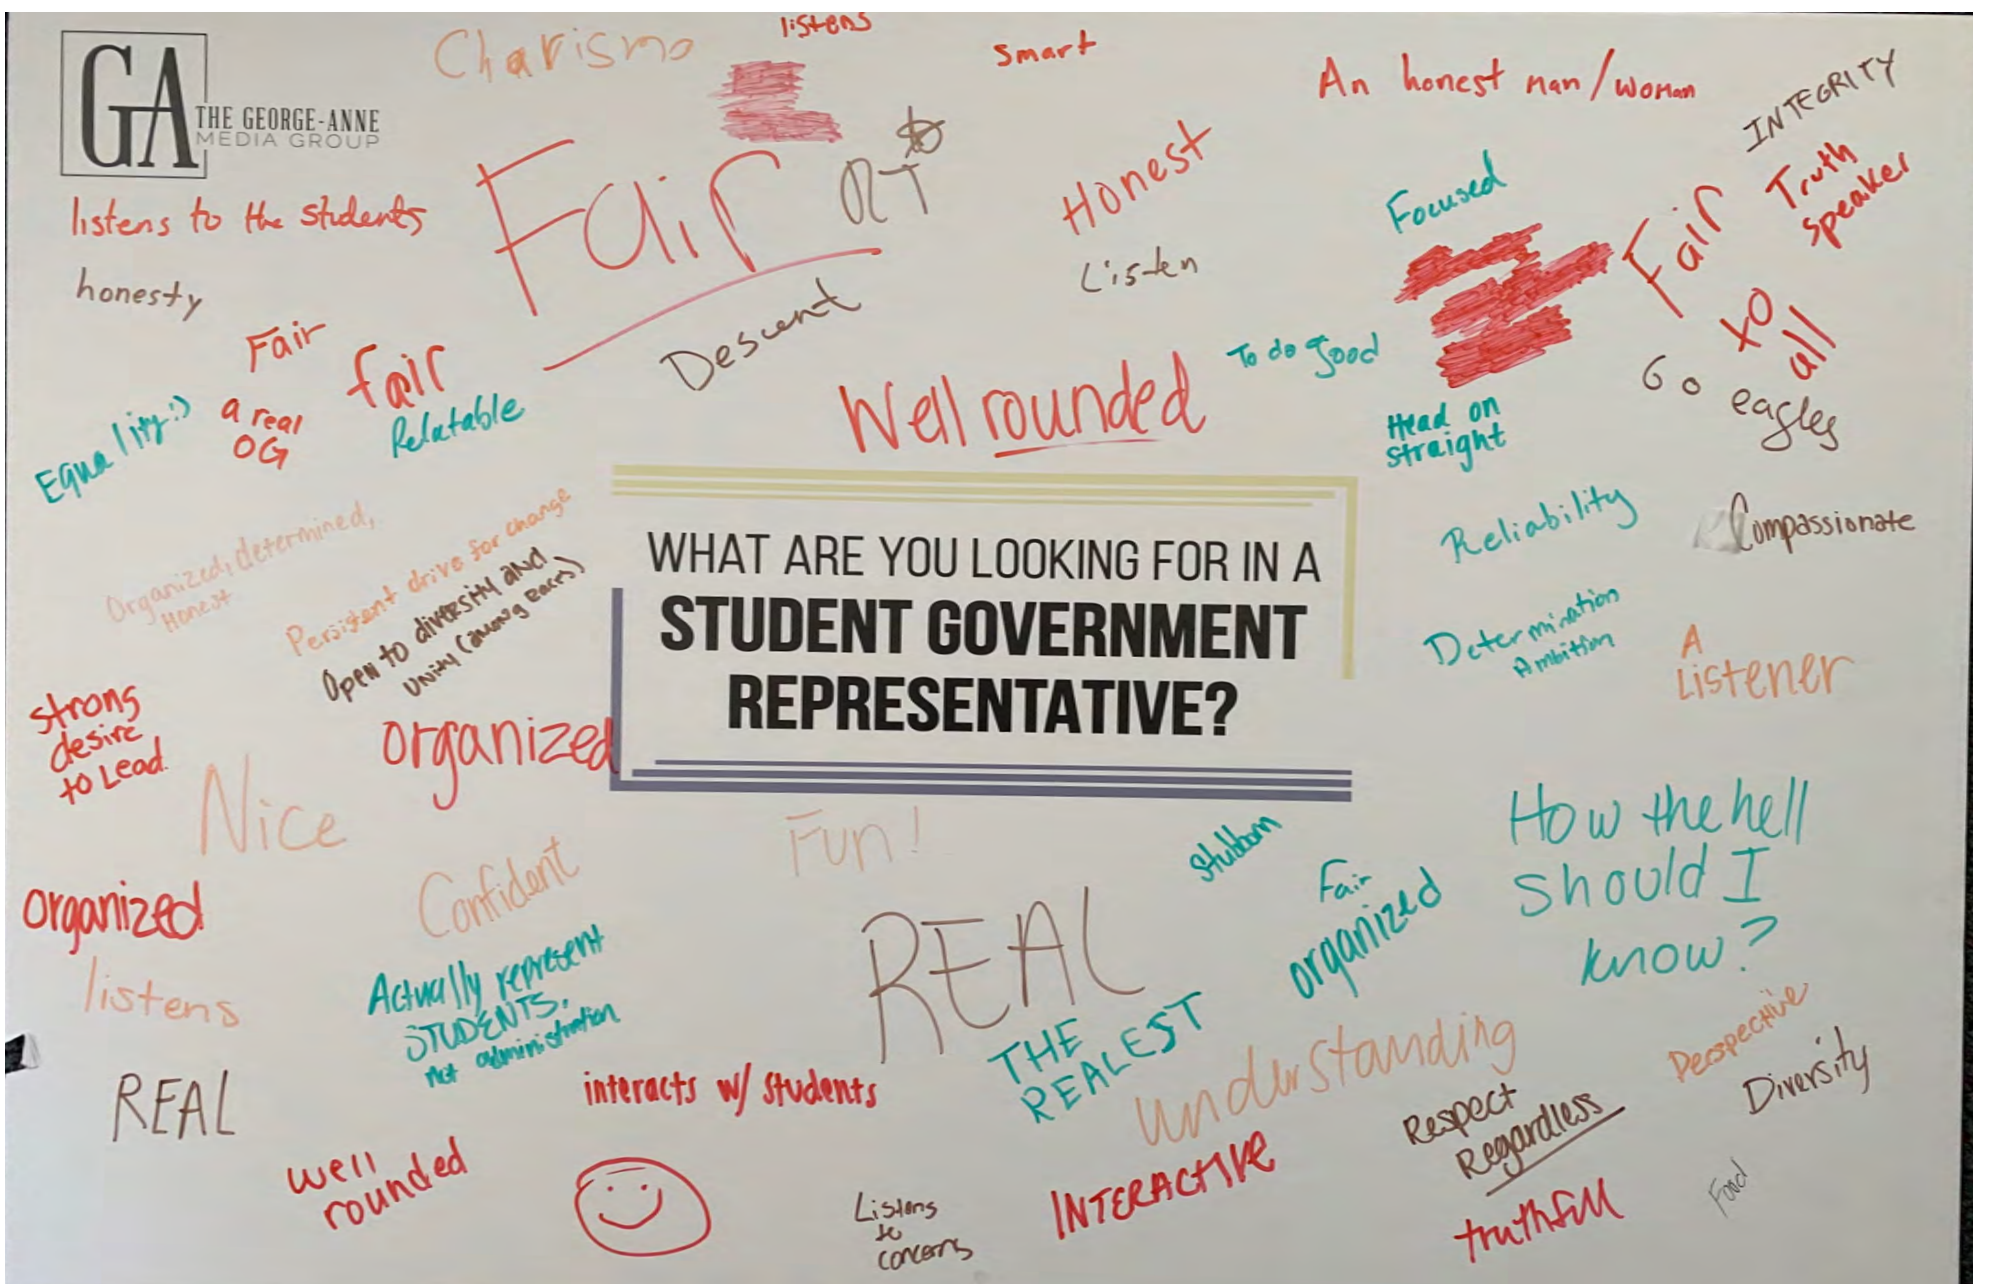 GA
THE GEORGE-ANNE
MEDIA GROUP
Charisma
listens
smart
An honest man/woman
INTEGRITY
Truth
speaker
listens to the students
honesty
Fair
Honest
Listen
Focused
Fair
to
all
Descent
To do good
Go
eagles
Fair
fair
Equality :)
a real
OG
Relatable
Well rounded
Head on
straight
Organized, determined,
Honest
Persistent drive for change
Open to diversity and
unity (among races)
WHAT ARE YOU LOOKING FOR IN A
STUDENT GOVERNMENT
REPRESENTATIVE?
Reliability
Compassionate
Determination
Ambition
A
Listener
strong
desire
to Lead.
organized
Nice
Fun!
Stubborn
How the hell
should I
know?
organized
Confident
Fair
organized
listens
Actually represent
STUDENTS.
not administration
REAL
THE
REALEST
understanding
Perspective
Diversity
REAL
interacts w/ students
Respect
Regardless
well
rounded
Listens
to
concerns
INTERACTIVE
truthfull
Food